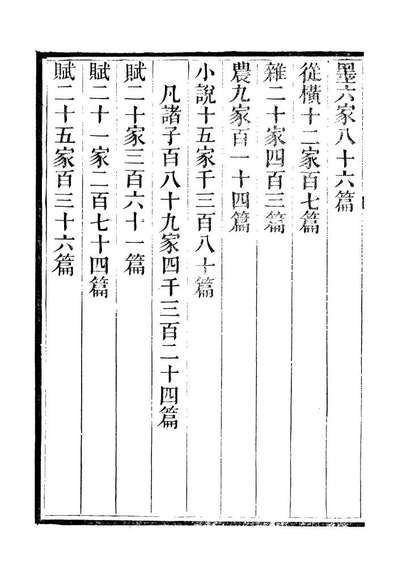 墨六家八十六篇
從橫十二家百七篇
雜二十家四百三篇
農九家百一十四篇
小說十五家千三百八十篇
凡諸子百八十九家四千三百二十四篇
賦二十家三百六十一篇
賦二十一家二百七十四篇
賦二十五家百三十六篇